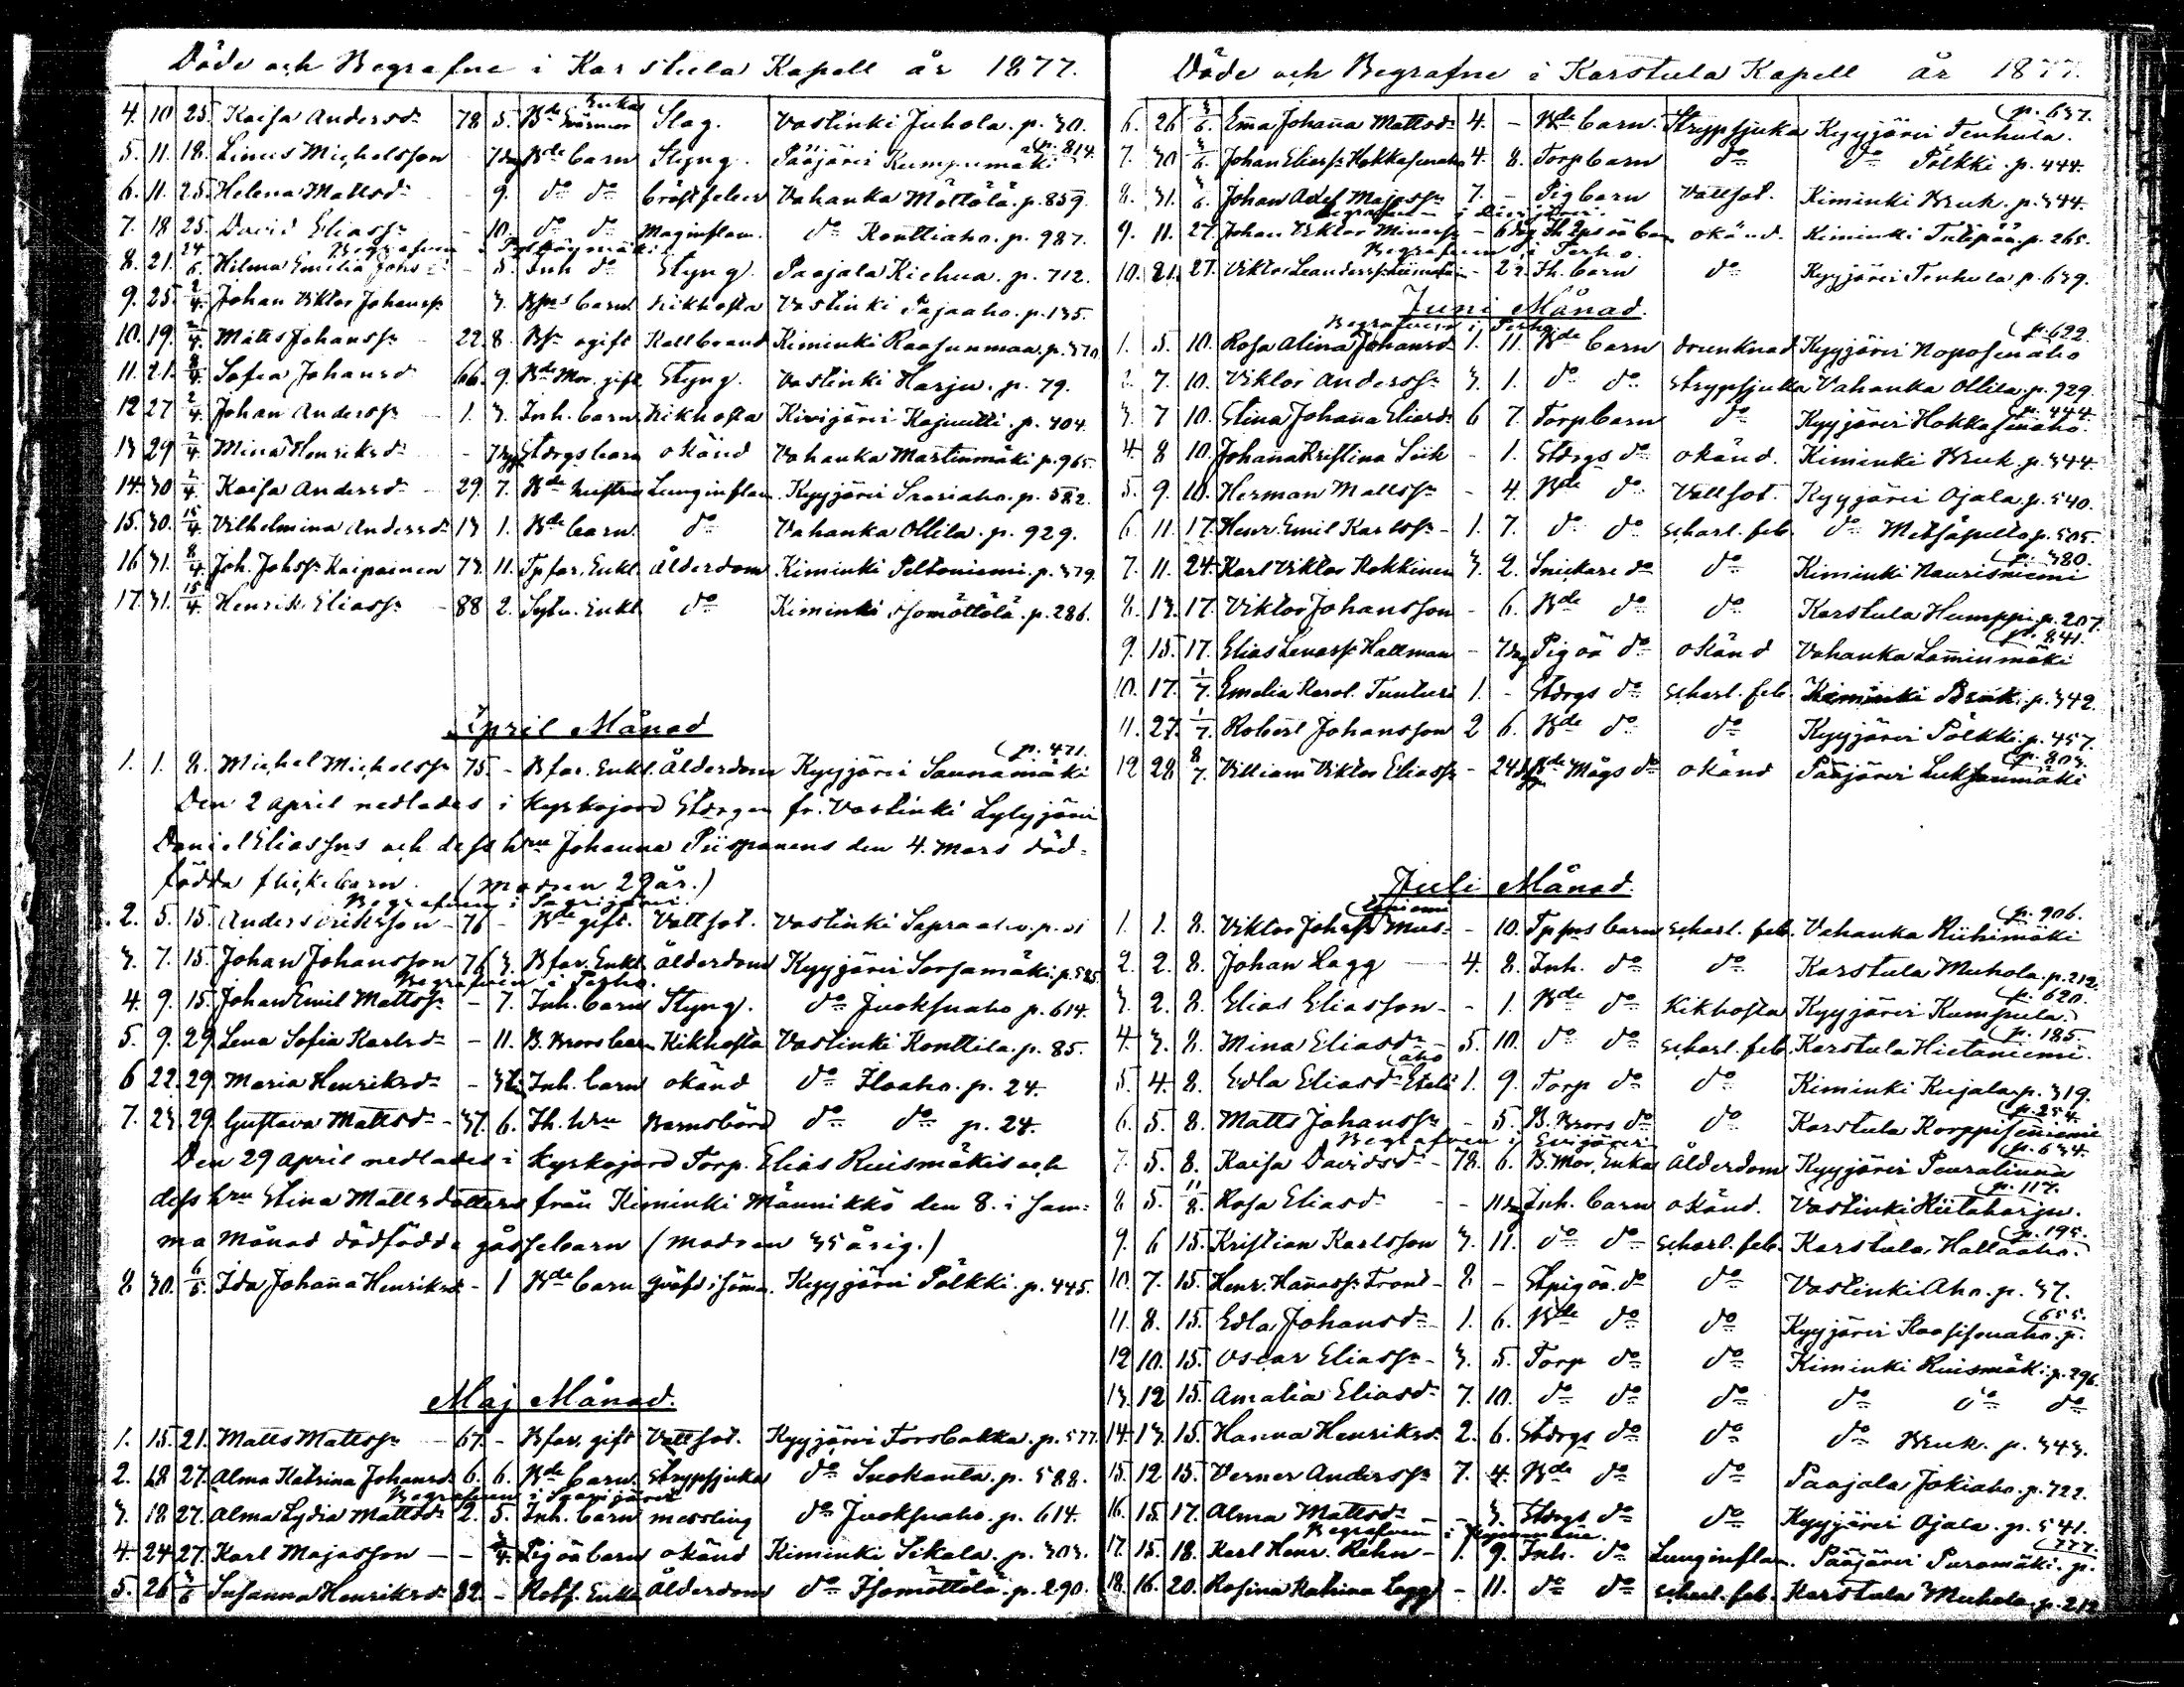 Döde och Begrafne i Karstula Kapell år 1877.
4. 10 25. Kaisa Andersdr 78 5. Bde Svärmor Enka Slag. Vastinki Juhola. p. 30.
5. 11. 18. Linus Michelsson - 7 dag Bde barn Styng. Pääjärvi Kumpumäki p. 814.
6. 11. 25. Helena Mattsdr - 9. do do bröstfeber Vahanka Möttölä. p. 859.
7. 18 25. David Eliass. - 10. do do Maginflam. do Konttiaho. p. 987.
Begrafven i Pylkönmäki.
8. 21. 24/6. Hilma Emilia Johsd - 5. Inh do Styng. Paajala Kiehua. p. 712.
9. 25. 2/4. Johan Viktor Johanss. 3. Bsns barn. Kikhosta Vastinki Pajaaho. p. 135.
10. 19. 2/4. Matts Johanss. 22. 8. Bs. ogift Kallbrand Kiminki Raasunmaa. p. 370.
11. 21. 8/4. Sofia Johansd 66. 9. Bde Mor. gift Styng. Vastinki Harju. p. 79.
12 27 2/4. Johan Anderss. 1. 3. Inh. barn. Kikhosta Kivijärvi Kojuutti. p. 404.
13 29 2/4. Mina Henriksdr - 7 dgr Stdrgs barn okänd Vahanka Martinmäki p. 965.
14. 30 2/4. Kaisa Andersdr 29. 7. Bde hustru Lunginflam. Kyyjärvi Saariaho. p. 582.
15. 30. 15/4. Vilhelmina Andersdr 13 1. Bde barn. do Vahanka Ollila. p. 929.
16 31. 8/4. Joh. Johss. Kaipainen 73. 11. Tp far. Enkl. Ålderdom. Kiminki Peltoniemi. p. 379.
17. 31. 15/4. Henrik Eliass. 88 2. Sytn. Enkl do Kiminki Isomöttölä. p. 286.
April Månad
1. 1. 8. Michel Michelss. 75. - B far. Enkl. Ålderdom Kyyjärvi Saunamäki p. 471.
Den 2 april nedlades i kyrkojord Stdrgen fr. Vastinki Lylyjärvi
Daniel Eliassns och dess hru Johanna Piispanens den 4. Mars död=
födda flickebarn. (Modren 29 år.)
Begrafven i Saarijärvi.
2. 5. 15. Anders Eriksson - 76 - Bde gift. Vattsot. Vastinki Sapraaho. p.
3. 7. 15. Johan Johansson 76 3. B far. Enkl. Ålderdom Kyyjärvi Sorsamäki. p. 585.
Begrafven i Perho.
4. 9. 15. Johan Emil Mattss. - 7. Inh. barn Styng. do Juoksuaho p. 614.
5. 9. 29. Lena Sofia Karlsdr - 11. B. Brors barn Kikhosta Vastinki Konttila. p. 85.
6 22. 29. Maria Henriksdr - Inh. barn okänd do Iloaho. p. 24.
7. 23. 29. Gustava Mattsdr - 37. 6. Ih. hru Barnsbörd do do p. 24.
Den 29 april nedlades i kyrkojord Torp. Elias Ruismäkis och
dess hru Stina Mattsdotters från Kiminki Männikkö den 8. i sam=
ma Månad dödfödda gossebarn (Modren 35 årig.)
8 30. 6/5. Ida Johanna Henriksd - 1 Bde barn qväfd i sömn. Kyyjärvi Pölkki. p. 445.
Maj Månad.
1. 15. 21. Matts Mattss. 67. - B far. gift Vattsot. Kyyjärvi Forsbakka. p. 577.
2. 18 27. Alma Katrina Johansd. 6. 6. Bde barn. Strypsjuka do Suokanta. p. 588.
Begrafven i Saarijärvi
3. 18 27. Alma Lydia Mattsdr 2. 5. Inh. barn messling do Juoksuaho. p. 614.
4. 24 27. Karl Majasson - - 3/4. Pig oä barn okänd Kiminki Sikala. p. 303.
5. 26 3/6 Susanna Henriksdr 82. - Rotf. Enka Ålderdom do Isomöttölä. p. 290.
Döde och Begrafne i Karstula Kapell år 1877.
6. 26 3/6. Emma Johanna Mattsdr 4. - Bde barn. Strypsjuka Kyyjärvi Tenhula. p. 637.
7. 30 3/6. Johan Eliass. Hokkasenaho 4. 8. Torp barn do do Pölkki. p. 444.
8. 31. 3/6. Johan Axel Majass. 7. - Pig barn Vattsot. Kiminki Bruk. p. 344.
9. 11. 27. Johan Viktor Minass. - 6 dag okänd. Kiminki Tulipää. p. 265.
Begrafven i Perho.
10. 21. 27. Viktor Leanderss. - Ih. barn do Kyyjärvi Tenhula p. 639.
Juni Månad.
Begrafven i Perho
1. 5. 10. Rosa Alina Johansdr 1. 11. Bde barn drunknad Kyyjärvi Noposenaho p. 622.
2. 7. 10. Viktor Anderss. 3. 1. do do Strypsjuka Vahanka Ollila. p. 929.
3. 7 10. Stina Johanna Eliasdr 6 7. Torp barn do Kyyjärvi Hokkasenaho. p. 444.
4. 8 10. Johanna Kristina Siik - 1. Stdrgs do okänd. Kiminki Bruk. p. 344.
5. 9. 10. Herman Mattss. - 4. Bde do Vattsot. Kyyjärvi Ojala. p. 540.
6. 11. 17. Henr. Emil Karlss. - 1. 7. do do Scharl. feb. do Metsäpelto p. 505.
7. 11. 24. Karl Viktor Kokkinen 3. 2. Snickare do do Kiminki Naurisniemi p. 380.
8. 13. 17. Viktor Johansson - 6. Bde do do Karstula Humppi. p. 207.
9. 15. 17. Elias Lenass. Hallman - 7 dag Pig oä do okänd Vahanka Lamminmäki p. 841.
10. 17. 1/7. Emelia Karol. Tunturi 1. - Stdrgs do Scharl. feb. Kiminki Bruk. p. 342.
11. 27. 1/7. Robert Johansson 2 6. Bde do do Kyyjärvi Pölkki. p. 457.
12 28 8/7. Villiam Viktor Eliass. - 24 dgr Bde Mågs do okänd Pääjärvi Leksanmäki p. 803.
Juli Månad.
1. 1. 8. Viktor Johss. Mus= - 10. Tp sns barn Scharl. feb. Vahanka Riihimäki p. 906.
2. 2. 8. Johan Lagg 4. 8. Inh. do do Karstula Muhola. p. 212.
3. 2. 8. Elias Eliasson - - 1. Bde do Kikhosta Kyyjärvi Kumpula. p. 620.
4. 3. 8. Mina Eliasdr - 5. 10. do do Scharl. feb. Karstula Hietaniemi. p. 185
5. 4. 8. Edla Eliasdr Etelä aho 1. 9. Torp do do Kiminki Kujala. p. 319.
6. 5. 8. Matts Johanss. - 5. B. Brors do do Karstula Korppisenniemi p. 254.
Begrafven i Evijärvi
7. 5. 8. Kaisa Davidsdr - 78. 6. B. Mor, Enka Ålderdom Kyyjärvi Peuralinna p. 634.
8 5. 11/8. Rosa Eliasdr - - 11 dag Inh. barn okänd. Vastinki Hietaharju. p. 117.
9. 6 15. Kristian Karlsson 3. 11. do do Scharl. feb. Karstula, Hallaaho. p. 195.
10. 7. 15. Henr. Hannass. Front - 8 - Stpig oä. do do Vastinki Aho. p. 37.
11. 8. 15. Edla Johansdr 1. 6. Bde do do Kyyjärvi Raasisenaho. p. 655.
12 10. 15. Oscar Eliass. - 3. 5. Torp do do Kiminki Ruismäki. p. 296.
13. 12 15. Amalia Eliasdr 7. 10. do do do do do do
14. 13. 15. Hanna Henriksd. 2. 6. Stdrgs do do do Bruk. p. 343.
15. 12 15. Verner Anderss. 7. 4. Bde do do Paajala Jokiaho. p. 722.
16. 15. 17. Alma Mattsdr - - 3. Stdrgs do do Kyyjärvi Ojala. p. 541.
Begrafven i
17. 15. 18. Karl Henr. Rehn - 1. 9. Inh. do Lunginflam. Pääjärvi Puromäki. p. 777.
18. 16. 20. Rosina Katrina Lagg - 11. do do Scharl. feb. Karstula Muhola. p. 212